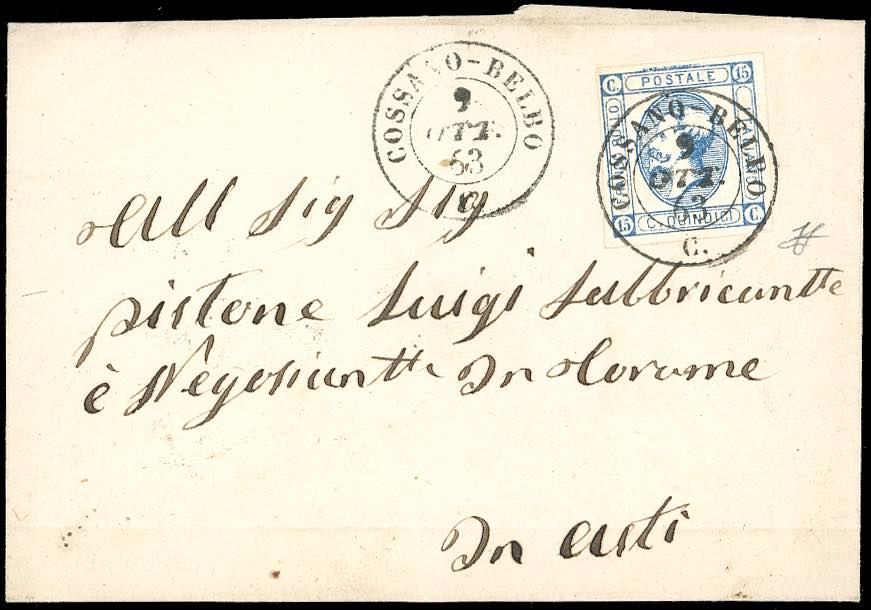 COSSANO-BELBO
9
OTT.
63
C.
C. POSTALE 15
BOLLO
15 C.QUINDICI C.
COSSANO-BELBO
9
OTT.
63
C.
All Sig Sig
Pistone Luigi Fabbricantte
è Negosiantte In Corame
In Asti